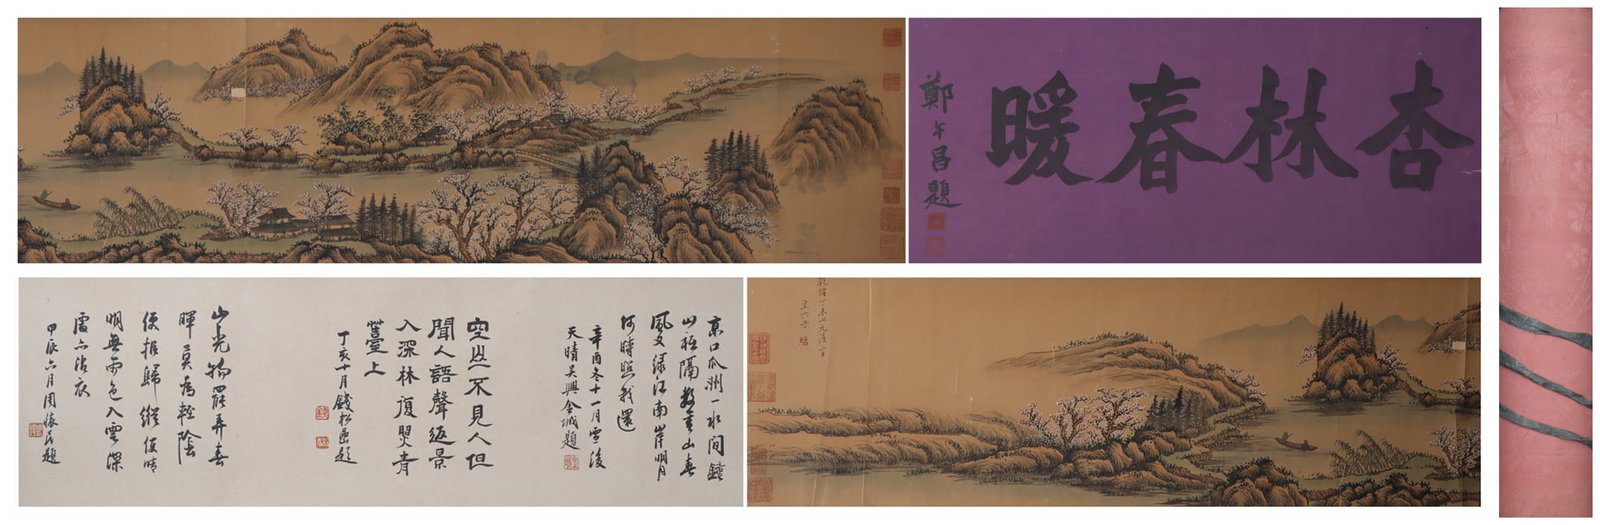 杏林春暖
鄭午昌題
京口瓜洲一水間鐘
山祗隔數重山春
風又綠江南岸明月
何時照我還
辛酉冬十一月雪後
天晴吳興金城題
空山不見人但
聞人語聲返景
入深林復照青
薹上
丁亥十月錢松嵒題
山光物態弄春
暉莫為輕陰
便擬歸縱使晴
明無雨色入雲深
處亦沾衣
甲辰六月周懷民題
乾隆丁未